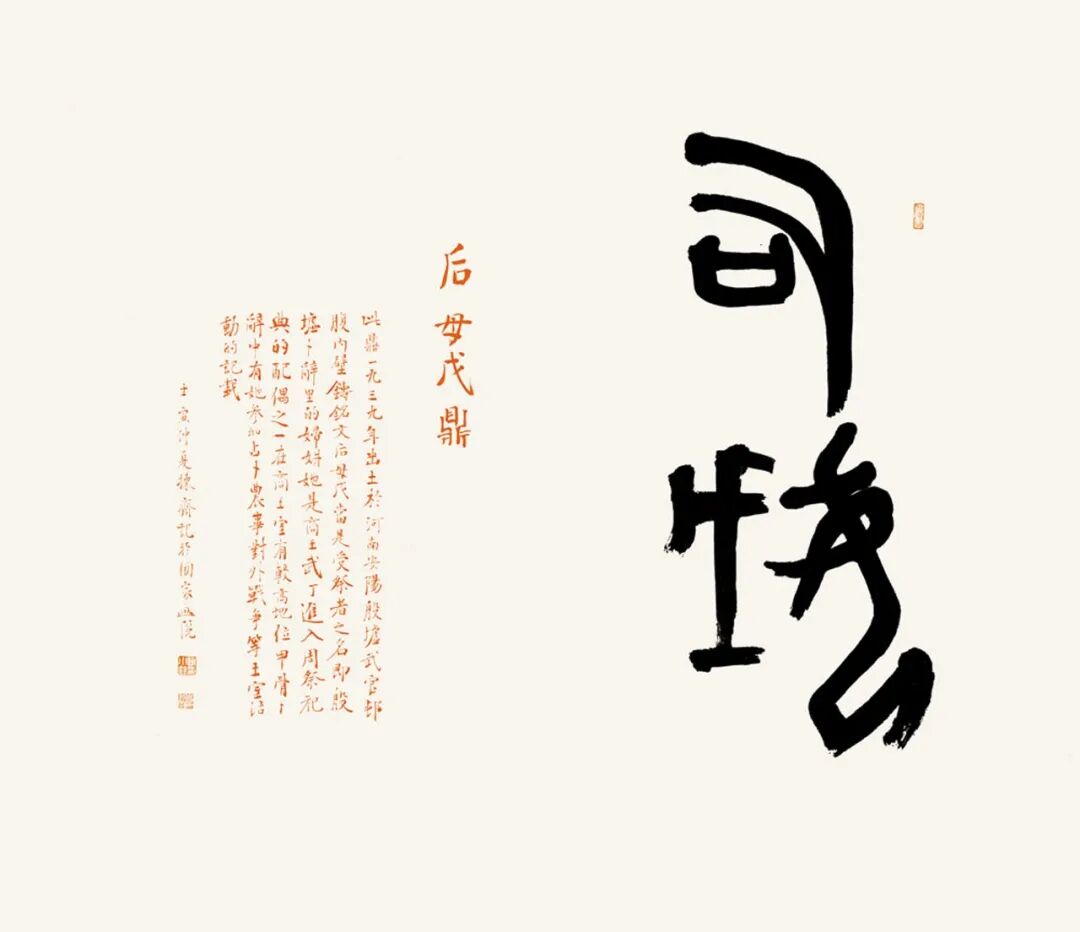 后母戊
后母戊鼎
此鼎一九三九年出土於河南安陽殷墟武官邨
腹内壁鑄銘文后母戊當是受祭者之名即殷
墟卜辭里的婦妌她是商王武丁進入周祭祀
典的配偶之一在商王室有較高地位甲骨卜
辭中有她參加占卜農事對外戰爭等王室活
動的記載
壬寅仲夏齋記於國家画院